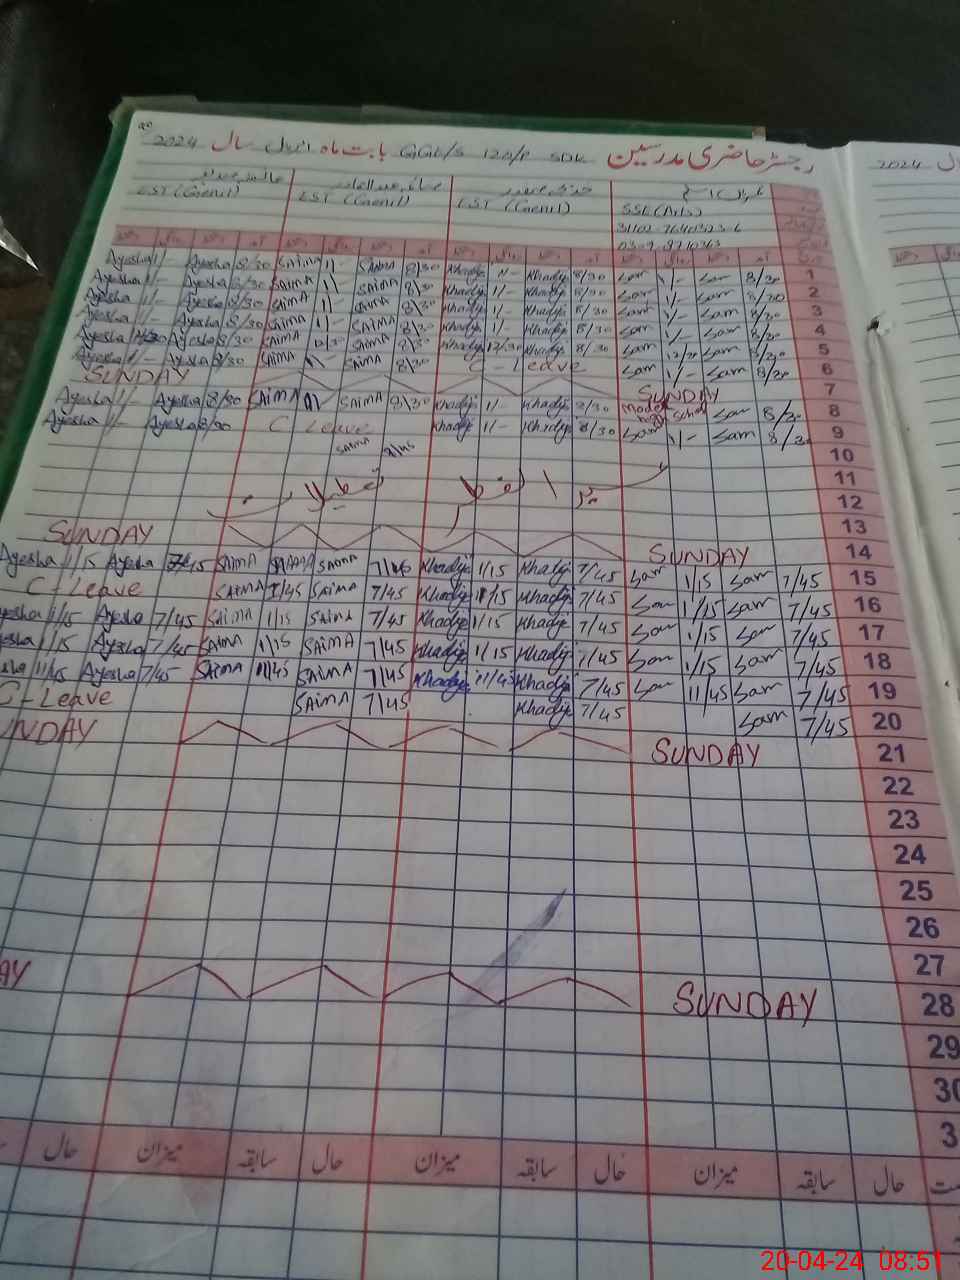 رجسٹر حاضری مدرسین GGE/S 120/P SDK بابت ماہ اپریل سال 2024
2024
EST (Genrl) EST (Genrl) EST (Genrl) SSE (Arts)
Ayesha 1/- Ayesha 8/30 SAIMA 1/- SAIMA 8/30 Khadija 1/- Khadija 8/30 Sam 1/- Sam 8/30 1
Ayesha 1/- Ayesha 8/30 SAIMA 1/- SAIMA 8/30 Khadija 1/- Khadija 8/30 Sam 1/- Sam 8/30 2
Ayesha 1/- Ayesha 8/30 SAIMA 1/- SAIMA 8/30 Khadija 1/- Khadija 8/30 Sam 1/- Sam 8/30 3
Ayesha 1/- Ayesha 8/30 SAIMA 1/- SAIMA 8/30 Khadija 1/- Khadija 8/30 Sam 1/- Sam 8/30 4
Ayesha 12/30 Ayesha 8/30 SAIMA 12/30 SAIMA 8/30 Khadija 12/30 Khadija 8/30 Sam 12/30 Sam 8/30 5
Ayesha 1/- Ayesha 8/30 SAIMA 1/- SAIMA 8/30 C-Leave Sam 1/- Sam 8/30 6
SUNDAY SUNDAY 7
Ayesha 1/- Ayesha 8/30 SAIMA 1/- SAIMA 8/30 Khadija 1/- Khadija 8/30 Sam 8/30 8
Ayesha 1/- Ayesha 8/30 C Leave Khadija 1/- Khadija 8/30 Sam 1/- Sam 8/30 9
SAIMA 7/45 10
11
تعطیلات عید الفطر 12
13
SUNDAY SUNDAY 14
Ayesha 1/15 Ayesha 7/45 SAIMA SAIMA 7/45 Khadija 1/15 Khadija 7/45 Sam 1/15 Sam 7/45 15
C-Leave SAIMA 1/45 SAIMA 7/45 Khadija 1/15 Khadija 7/45 Sam 1/15 Sam 7/45 16
yesha 1/15 Ayesha 7/45 SAIMA 1/15 SAIMA 7/45 Khadija 1/15 Khadija 7/45 Sam 1/15 Sam 7/45 17
sha 1/15 Ayesha 7/45 SAIMA 1/15 SAIMA 7/45 Khadija 1/15 Khadija 7/45 Sam 1/15 Sam 7/45 18
sha 11/45 Ayesha 7/45 SAIMA 11/45 SAIMA 7/45 Khadija 11/45 Khadija 7/45 Sam 11/45 Sam 7/45 19
C-Leave SAIMA 7/45 Khadija 7/45 Sam 7/45 20
UNDAY SUNDAY 21
22
23
24
25
26
27
AY SUNDAY 28
29
30
3
حال سابقہ میزان حال سابقہ میزان حال سابقہ میزان حال
20-04-24 08:51